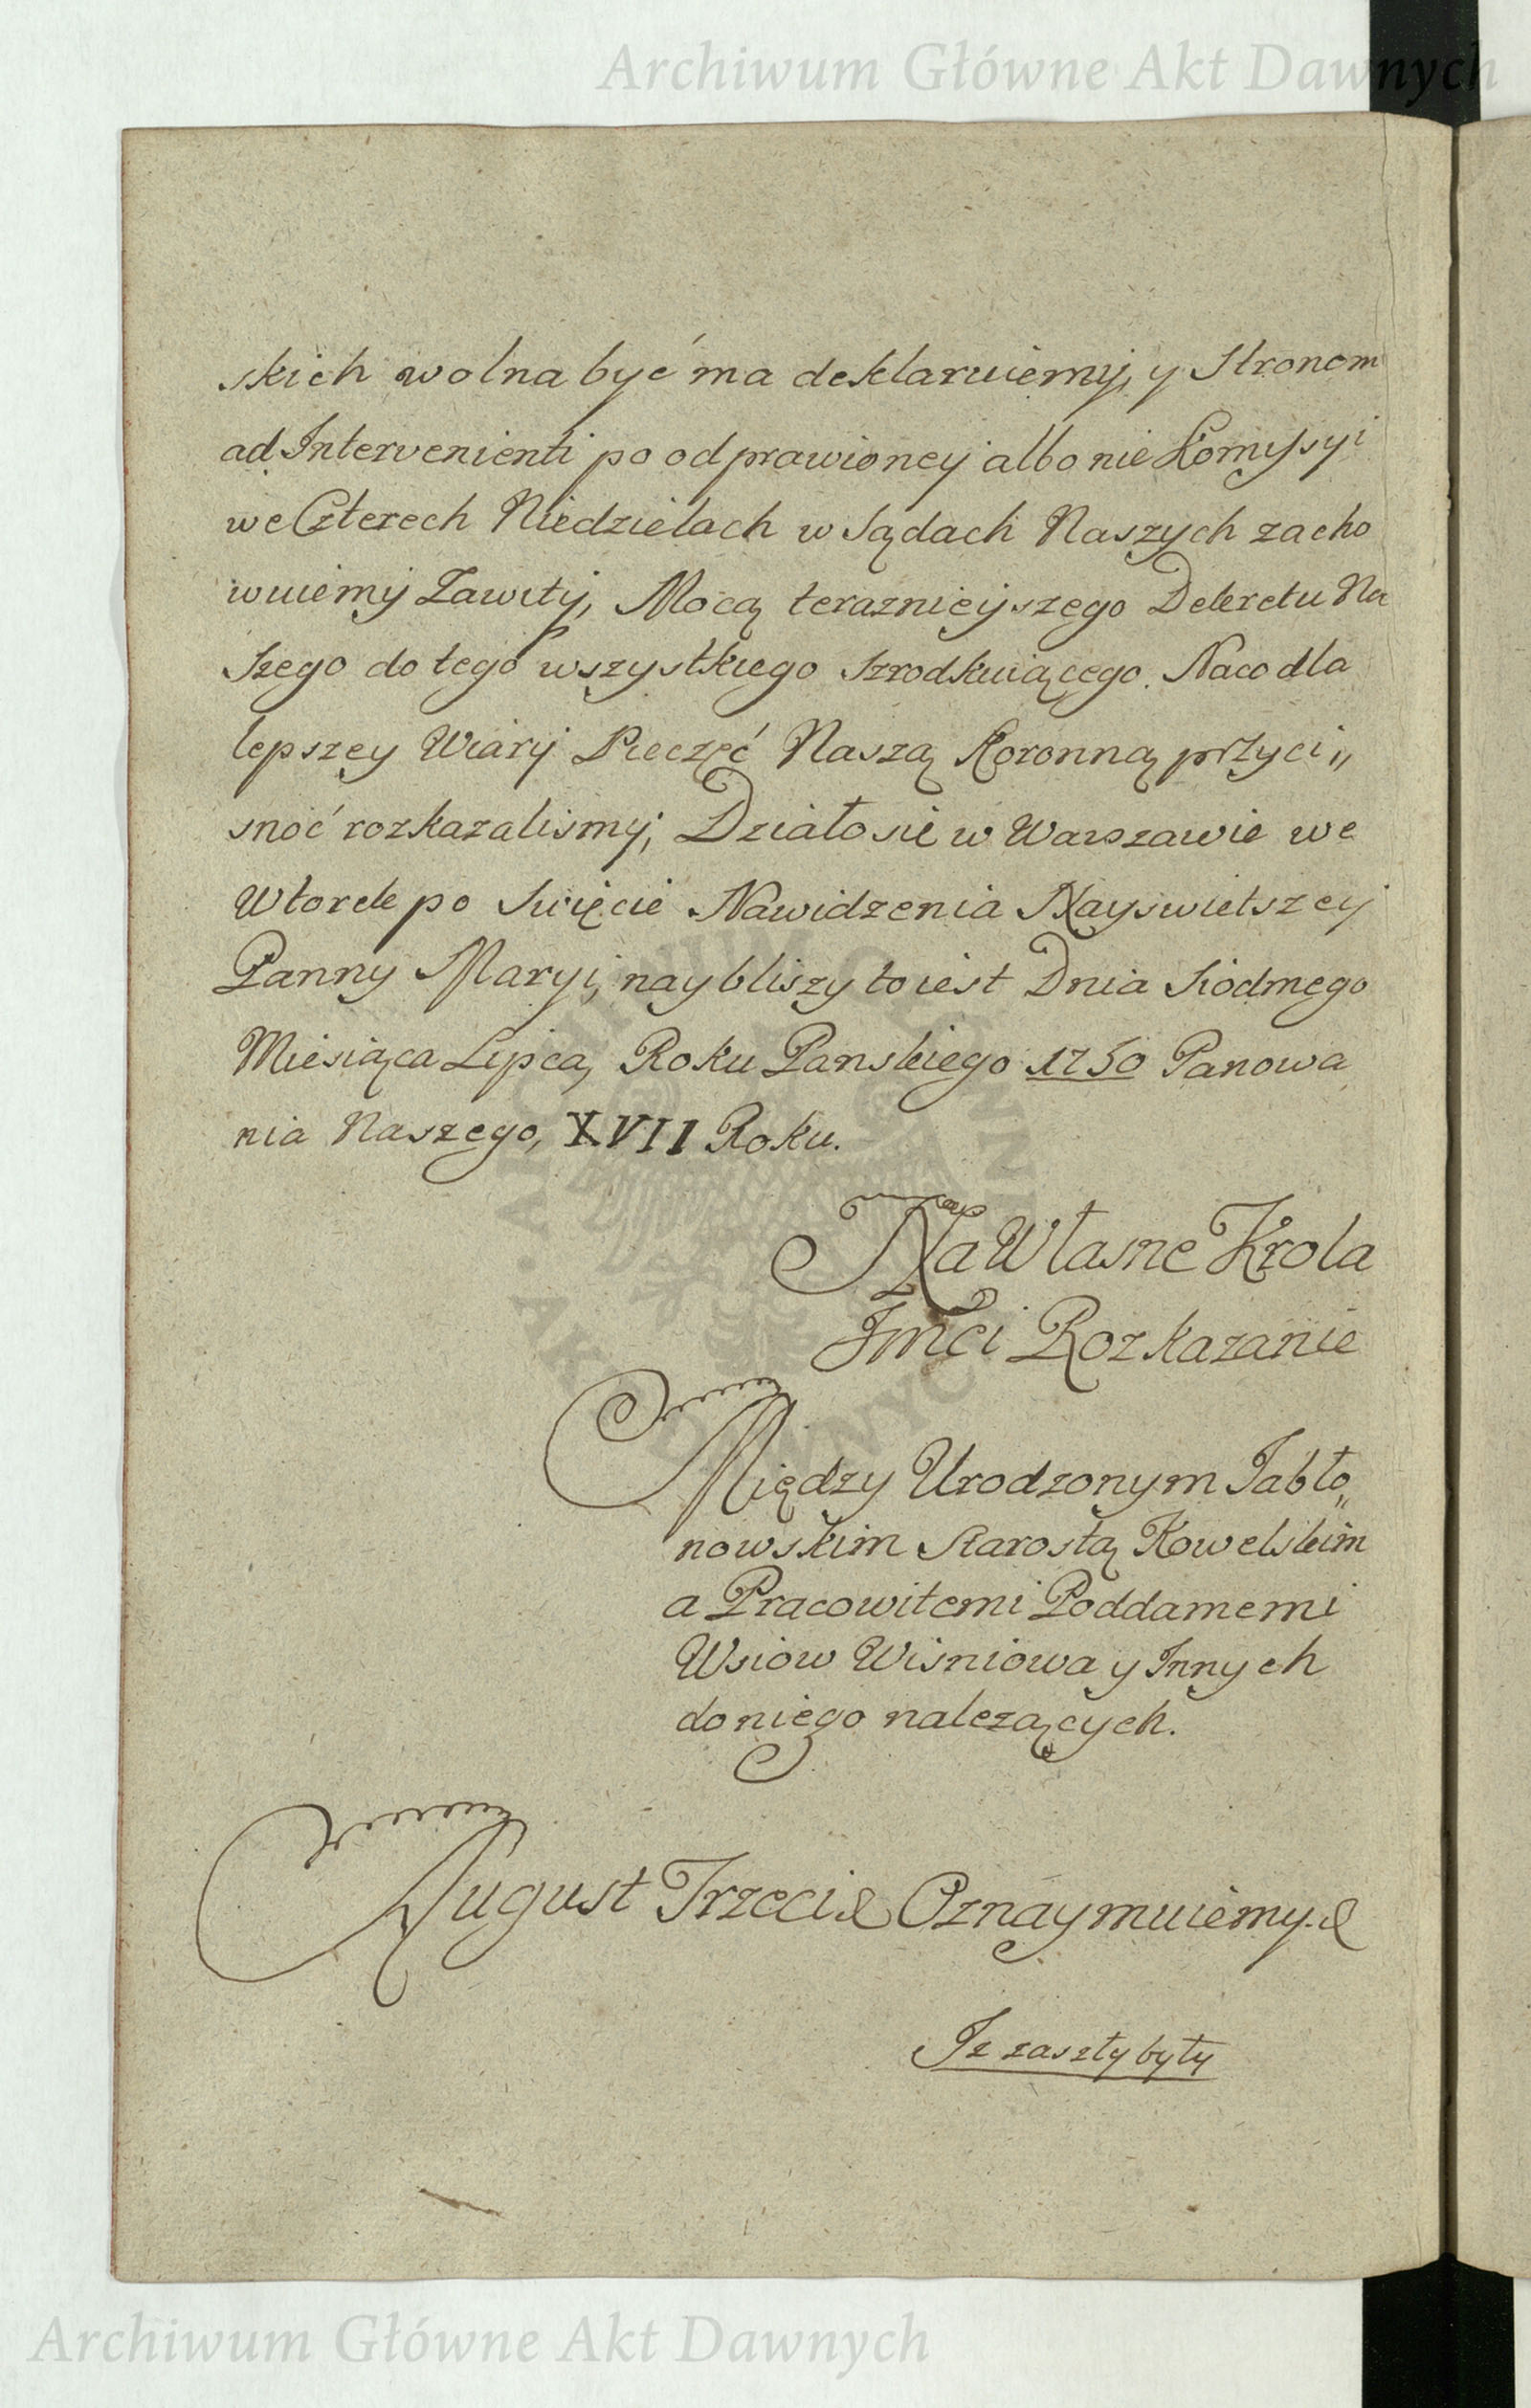 Archiwum Główne Akt Dawnych
skich wolna być ma deklaruiemy, y Stronom
ad Intervenienti po odprawioney albo nie Komyssyi
we Czterech Niedzielach w Sądach Naszych zacho
wuiemy Zawity, Mocą teraznieyszego Dekretu Na
szego do tego wszystkiego szrodkuiącego. Naco dla
lepszey Wiary Pieczęć Naszą Koronną przyci„
snoć rozkazalismy; Działo sie w Warszawie we
Wtorek po Swięcie Nawidzenia Nayswietszey
Panny Maryi, naybliszy to iest Dnia Siodmego
Miesiąca Lipca, Roku Panskiego 1750 Panowa
nia Naszego, XVII Roku.
Na Własne Krola
Jmci Rozkazanie
Między Urodzonym Jabło„
nowskim Starostą Kowelskim
a Pracowitemi Poddamemi
Wsiow Wisniowa y Innych
do niego nalezących.
August Trzeci & Oznaymuiemy. &
Jz zaszły były
Archiwum Główne Akt Dawnych